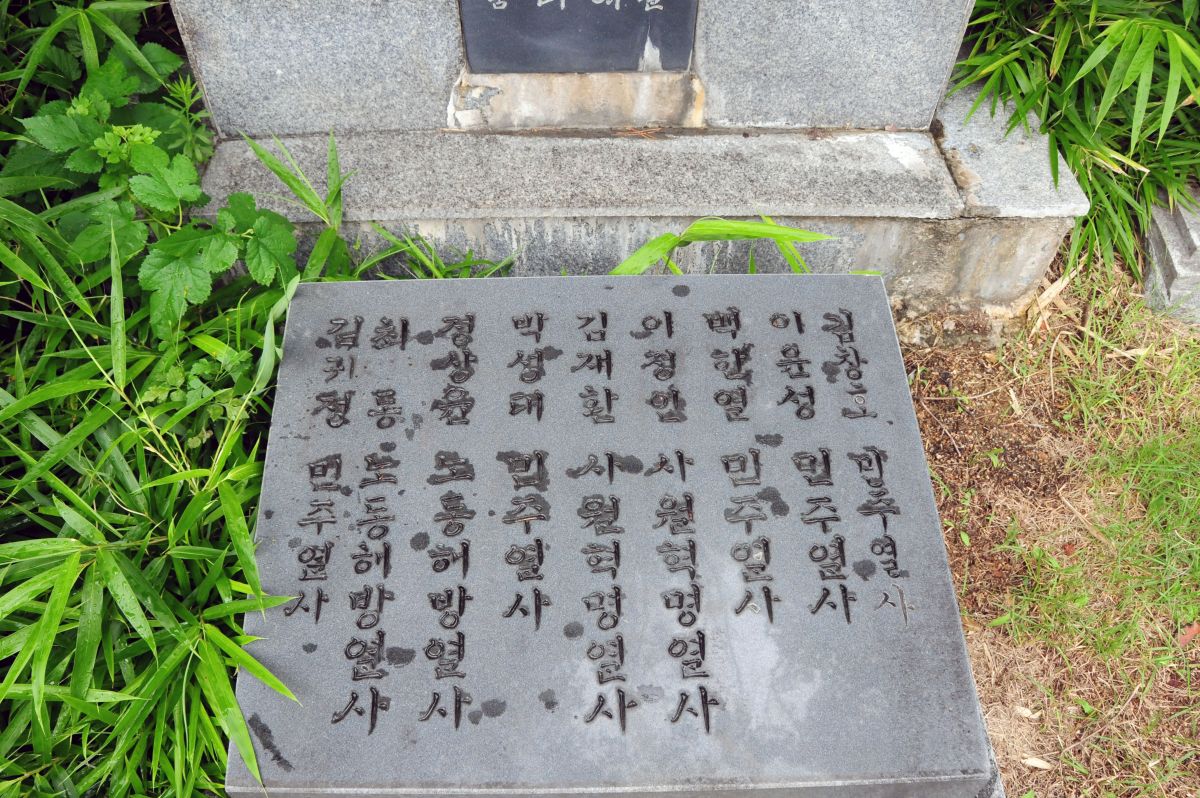 김창호 민주열사
이윤성 민주열사
백한열 민주열사
이정인 사월혁명열사
김재환 사월혁명열사
박성태 민주열사
정상윤 노동해방열사
최 동 노동해방열사
김귀정 민주열사